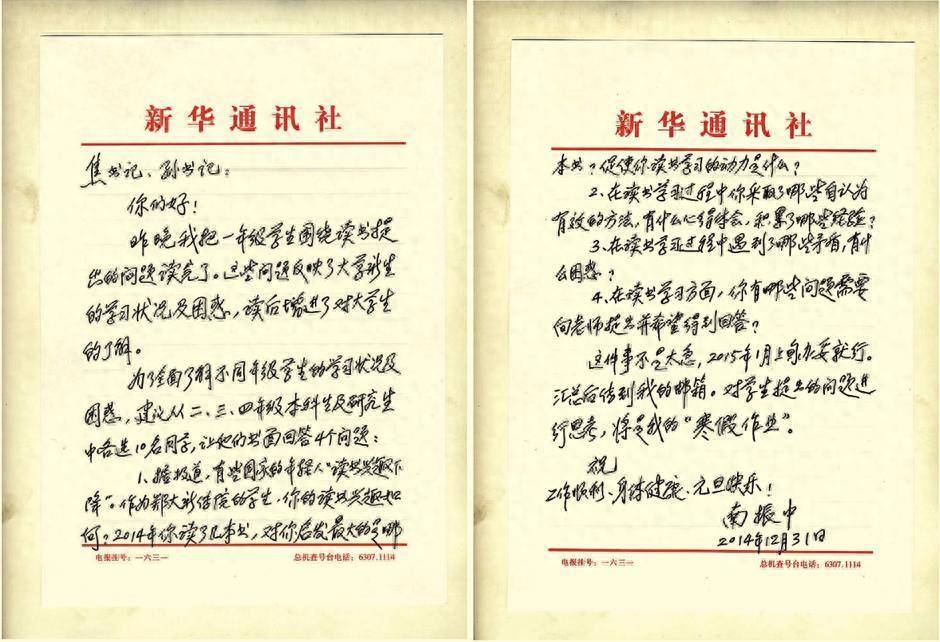 新华通讯社
焦书记、孙书记：
你们好！
昨晚，我把一年级学生围绕读书提
出的问题读完了。这些问题反映了大学新生
的学习状况及困惑，读后增进了对大学生
的了解。
为了全面了解不同年级学生的学习状况及
困惑，建议从二、三、四年级本科生及研究生
中各选10名同学，让他们书面回答4个问题：
1、据报道，有些国家的年轻人“读书兴趣下
降”。作为郑大新传院的学生，你的读书兴趣如
何？2014年你读了几本书，对你启发最大的是哪
电报挂号：一六三一 总机查号台电话：6307.1114
新华通讯社
本书？促使你读书学习的动力是什么？
2、在读书学习过程中你采取了哪些自认为
有效的方法，有什么心得体会，积累了哪些经验？
3、在读书学习过程中遇到了哪些矛盾，有什
么困惑？
4、在读书学习方面，你有哪些问题需要
向老师提出并希望得到回答？
这件事不是太急，2015年1月上旬办妥就行。
汇总后传到我的邮箱。对学生提出的问题进
行思考，将是我的“寒假作业”。
祝
工作顺利、身体健康、元旦快乐！
南振中
2014年12月31日
电报挂号：一六三一 总机查号台电话：6307.1114